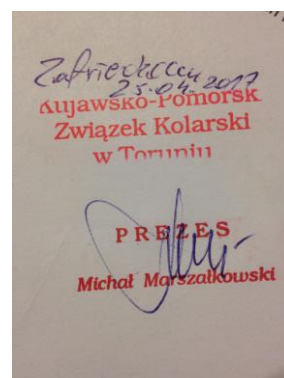 Zatwierdzam
25.04.2017
Kujawsko-Pomorsk
Związek Kolarski
w Toruniu
PREZES
Michał Marszałkowski